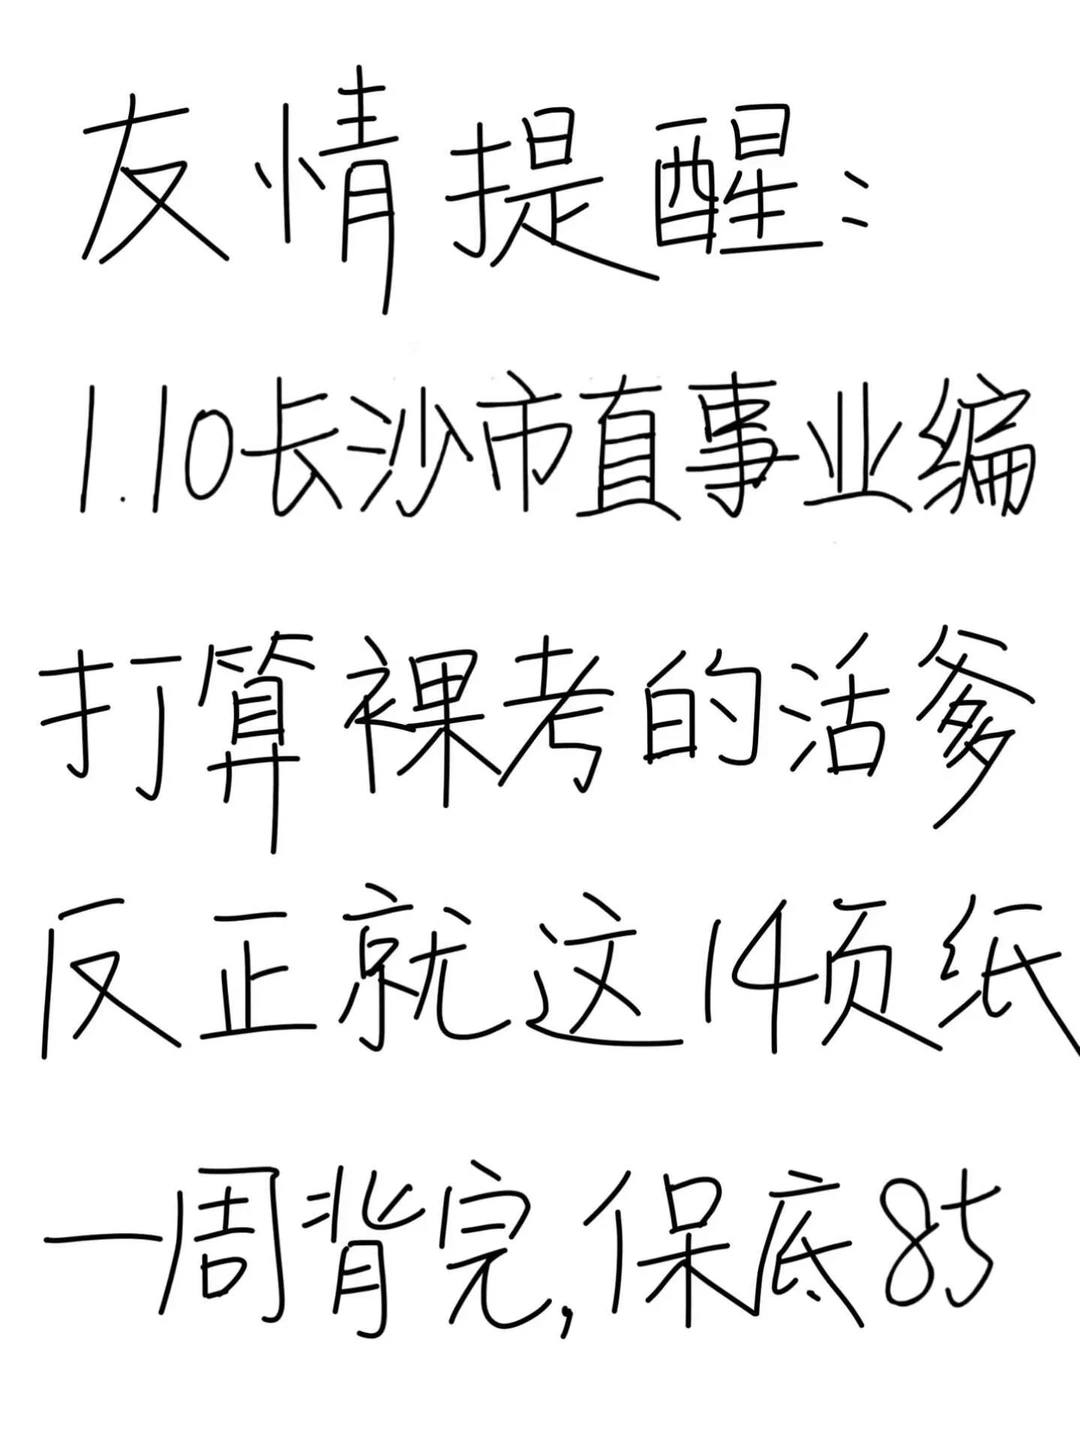 友情提醒:
1.10长沙市直事业编
打算裸考的活爹
反正就这14页纸
一周背完,保底85